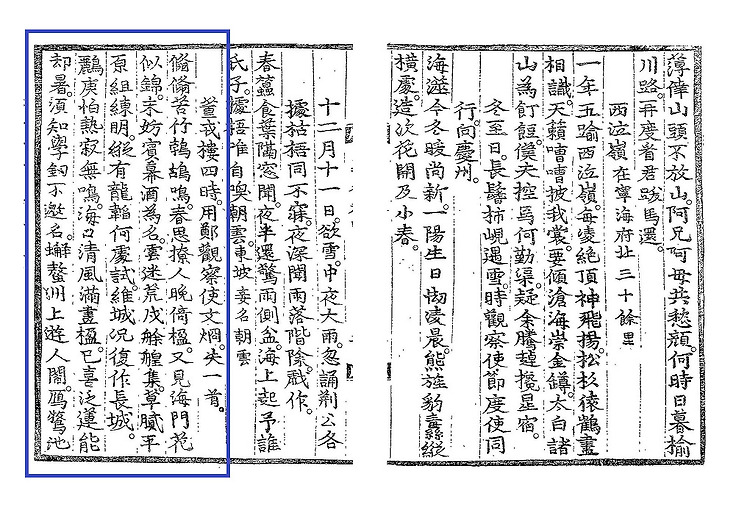 薄倖山頭不放山。阿兄阿母共愁顔。何時日暮揄
川路。再度看君跋馬還。
西泣嶺在寧海府北三十餘里
一年五踰西泣嶺。每凌絶頂神飛揚。松杉猿鶴盡
相識。天籟嘈嘈披我裳。要傾滄海崇金罇。太白諸
山爲飣餖。僕夫控馬何勤渠。疑余騰趠攬星宿。
冬至日。長鬐柿峴遇雪。時觀察使節度使同
行向慶州。
海澨今冬暖尚新。一陽生日㤼凌晨。熊旌豹纛縱
橫處。造次花開及小春。
十二月十一日。欲雪。中夜大雨。忽誦荆公各
據枯梧同不寐。夜深聞雨落階除。戱作。
春蠶食葉隔窓聞。夜半還驚雨側盆。海上起予誰
氏子。據梧唯自喚朝雲。東坡妾名朝雲
萱戎樓四時。用鄭觀察使文烱。失一首。
脩脩苦竹鷓鴣鳴。春思撩人晩倚楹。又見海門花
似錦。未妨賓幕酒爲名。雲迷荒戍艅艎集。草膩平
原組練明。縱有龍韜何處試。維城况復作長城。
鸝庚怕熱寂無鳴。海口清風滿畫楹。已喜泛蓮能
却暑。須知學釰不邀名。蠏螯洲上遊人閙。鴈鶩池